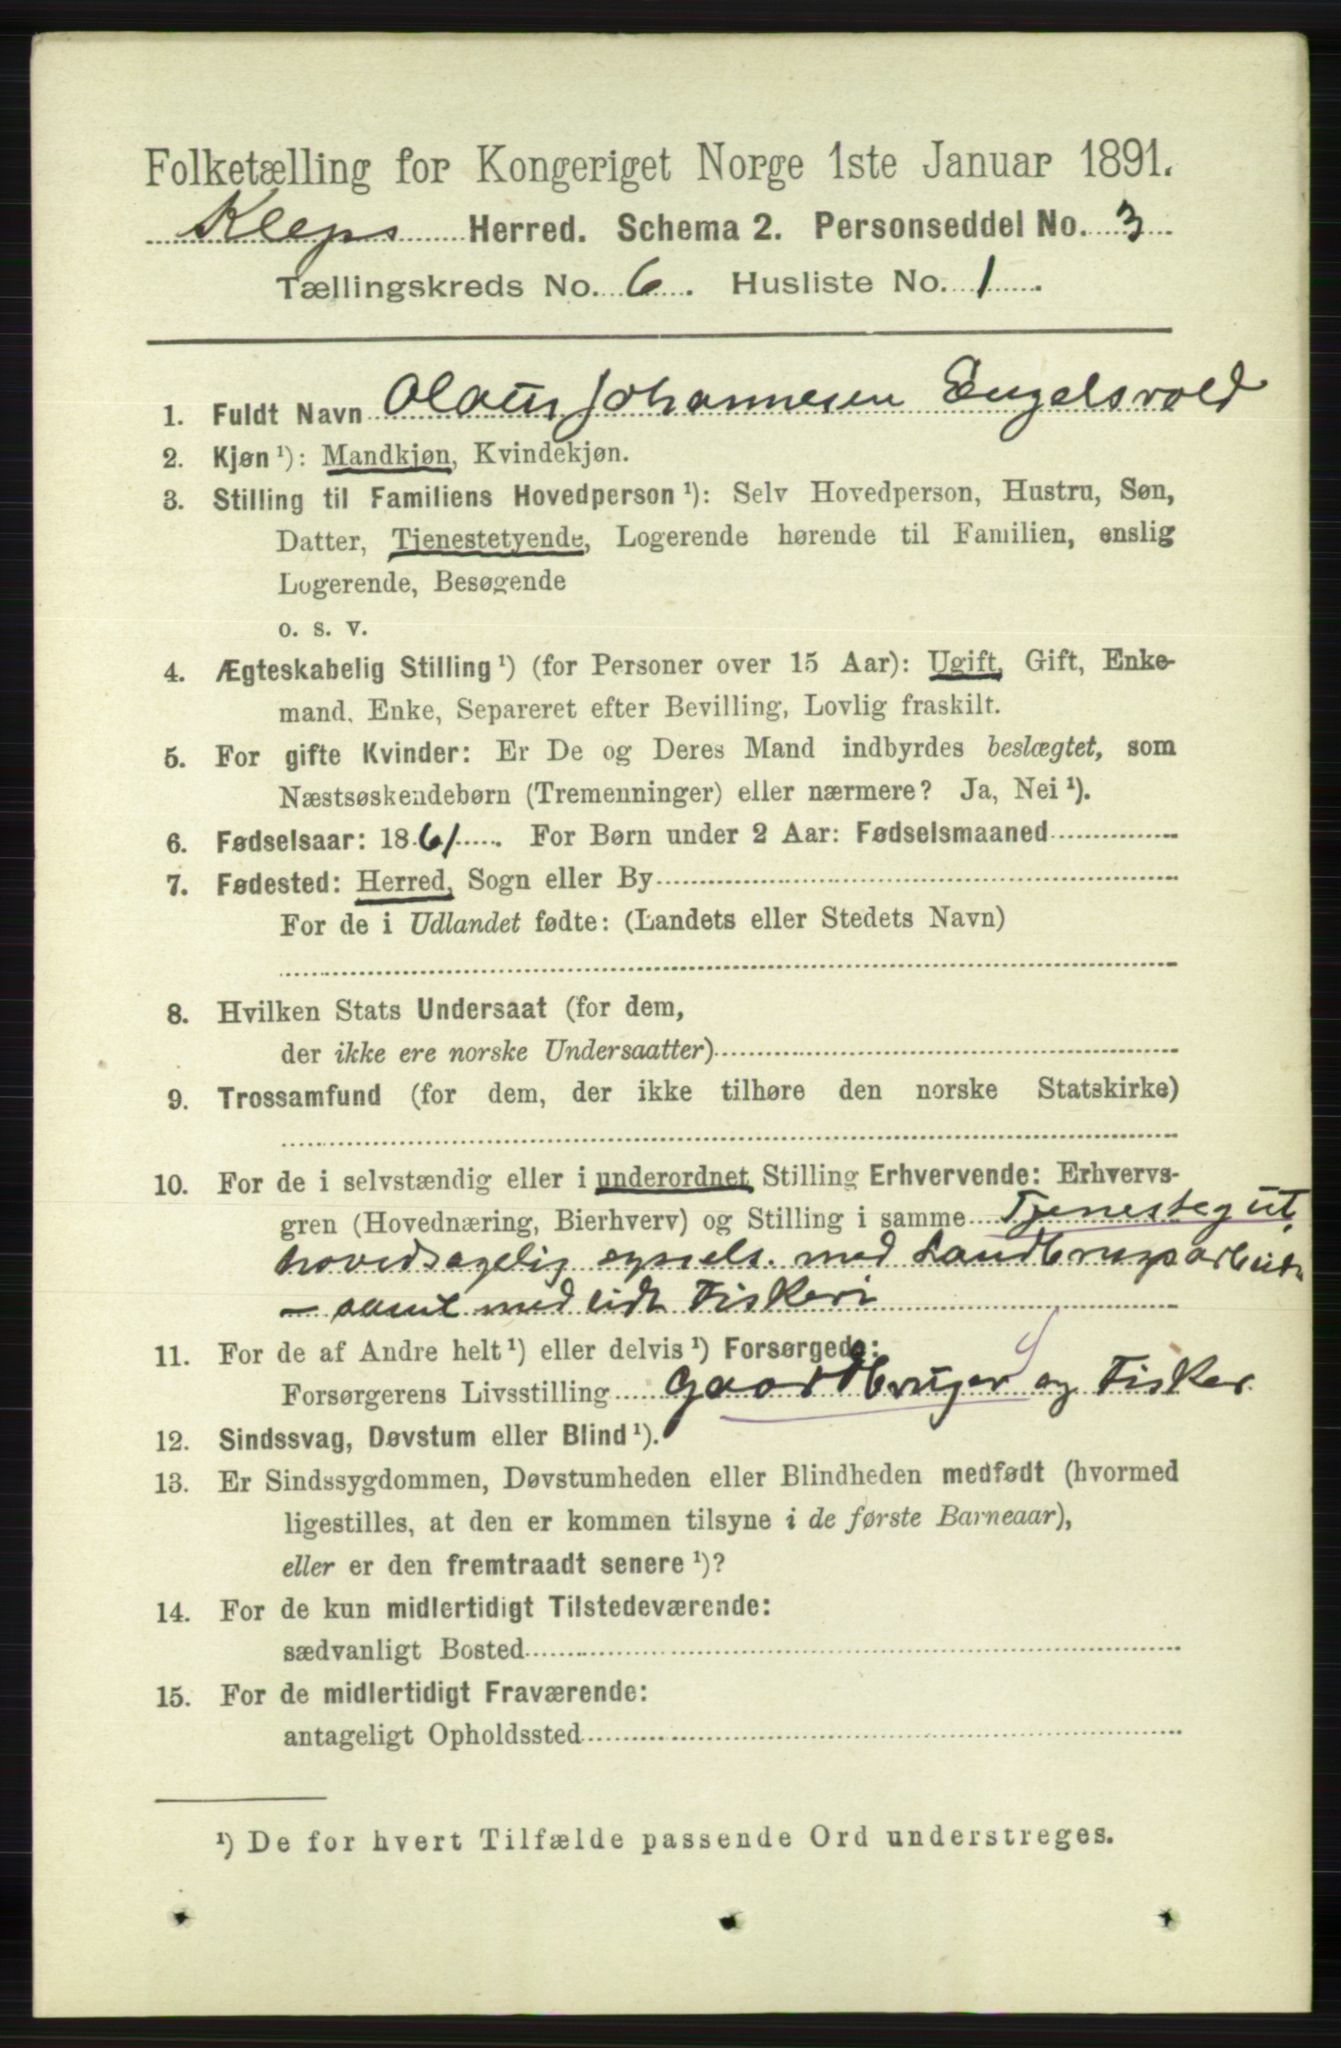 Folketælling for Kongeriget Norge 1ste Januar 1891.
Kleps Herred. Schema 2. Personseddel No. 3
Tællingskreds No. 6. Husliste No. 1.
1. Fuldt Navn Olaus Johannesen Engelsvold
2. Kjøn ¹): Mandkjøn, Kvindekjøn.
3. Stilling til Familiens Hovedperson ¹): Selv Hovedperson, Hustru, Søn,
Datter, Tjenestetyende, Logerende hørende til Familien, enslig
Logerende, Besøgende
o. s. v.
4. Ægteskabelig Stilling ¹) (for Personer over 15 Aar): Ugift, Gift, Enke-
mand, Enke, Separeret efter Bevilling, Lovlig fraskilt.
5. For gifte Kvinder: Er De og Deres Mand indbyrdes beslægtet, som
Næstsøskendebørn (Tremenninger) eller nærmere? Ja, Nei ¹).
6. Fødselsaar: 1861. For Børn under 2 Aar: Fødselsmaaned
7. Fødested: Herred, Sogn eller By
For de i Udlandet fødte: (Landets eller Stedets Navn)
8. Hvilken Stats Undersaat (for dem,
der ikke ere norske Undersaatter)
9. Trossamfund (for dem, der ikke tilhøre den norske Statskirke)
10. For de i selvstændig eller i underordnet Stilling Erhvervende: Erhvervs-
gren (Hovednæring, Bierhverv) og Stilling i samme Tjenestegut,
hovedsagelig syssels. med Landbrugsarbeide
– samt med lidt Fiskeri
11. For de af Andre helt ¹) eller delvis ¹) Forsørgede:
Forsørgerens Livsstilling Gaardbruger og Fisker
12. Sindssvag, Døvstum eller Blind ¹).
13. Er Sindssygdommen, Døvstumheden eller Blindheden medfødt (hvormed
ligestilles, at den er kommen tilsyne i de første Barneaar),
eller er den fremtraadt senere ¹)?
14. For de kun midlertidigt Tilstedeværende:
sædvanligt Bosted
15. For de midlertidigt Fraværende:
antageligt Opholdssted
¹) De for hvert Tilfælde passende Ord understreges.